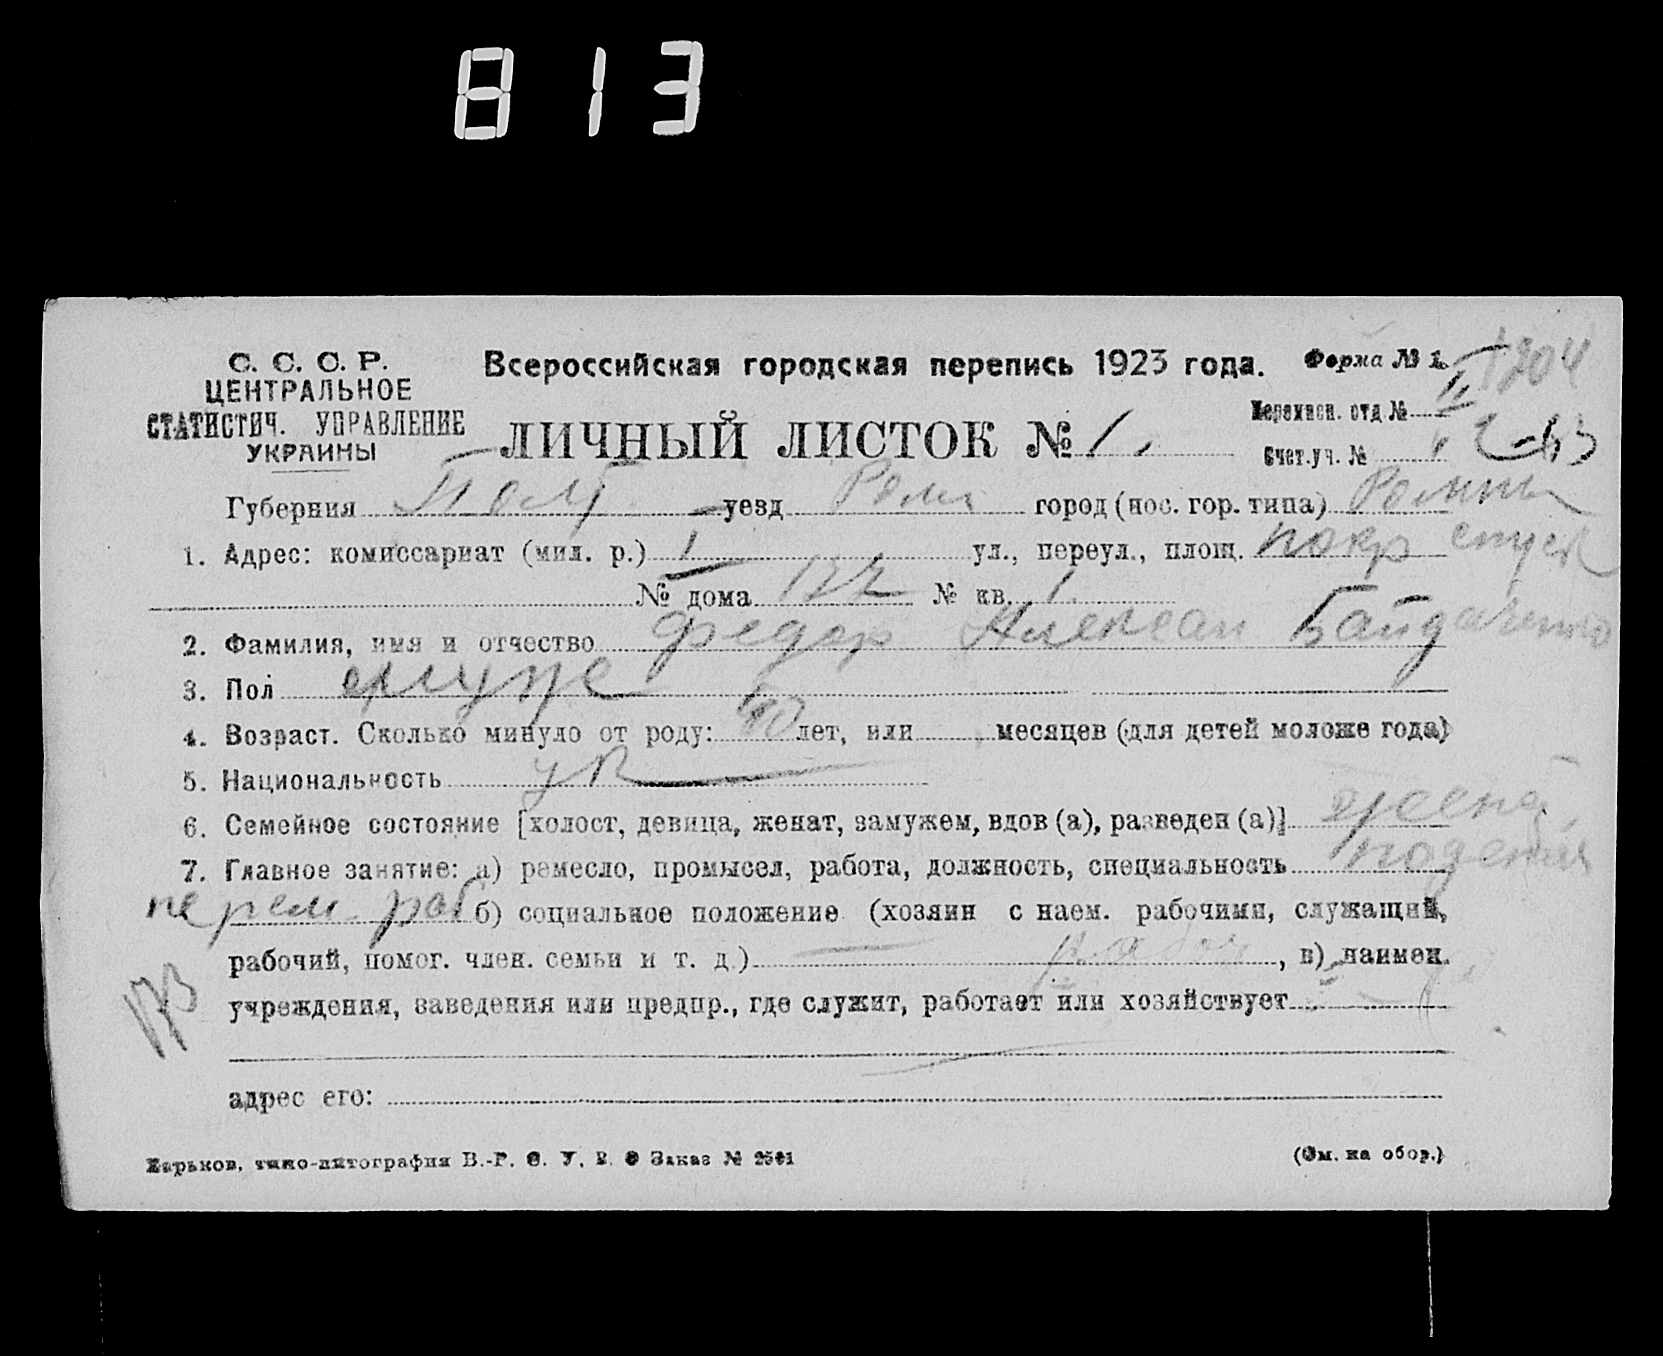 813
С. С. С. Р.
ЦЕНТРАЛЬНОЕ
СТАТИСТИЧ. УПРАВЛЕНИЕ
УКРАИНЫ
Всероссийская городская перепись 1923 года.
Форма № 1.
1204
ЛИЧНЫЙ ЛИСТОК № 1.
Переписн. отд № II
Счет.уч. №
Губерния Полт уезд Ром город (пос. гор. типа) Ромны
1. Адрес: комиссариат (мил. р.) I ул., переул., площ. Покр спуск
№ дома 122 № кв. 1.
2. Фамилия, имя и отчество Федор Алексан Байдаченко
3. Пол муж
4. Возраст. Сколько минуло от роду: 40 лет, или месяцев (для детей моложе года)
5. Национальность ук
6. Семейное состояние [холост, девица, женат, замужем, вдов (а), разведен (а)] женат
7. Главное занятие: а) ремесло, промысел, работа, должность, специальность
раб б) социальное положение (хозяин с наем. рабочими, служащий,
рабочий, помог. член. семьи и т. д.) рабоч , в) наимен.
учреждения, заведения или предпр., где служит, работает или хозяйствует
173
адрес его:
Харьков, типо-литография В.-Р. С. У. В. О Заказ №
(См. на обор.)